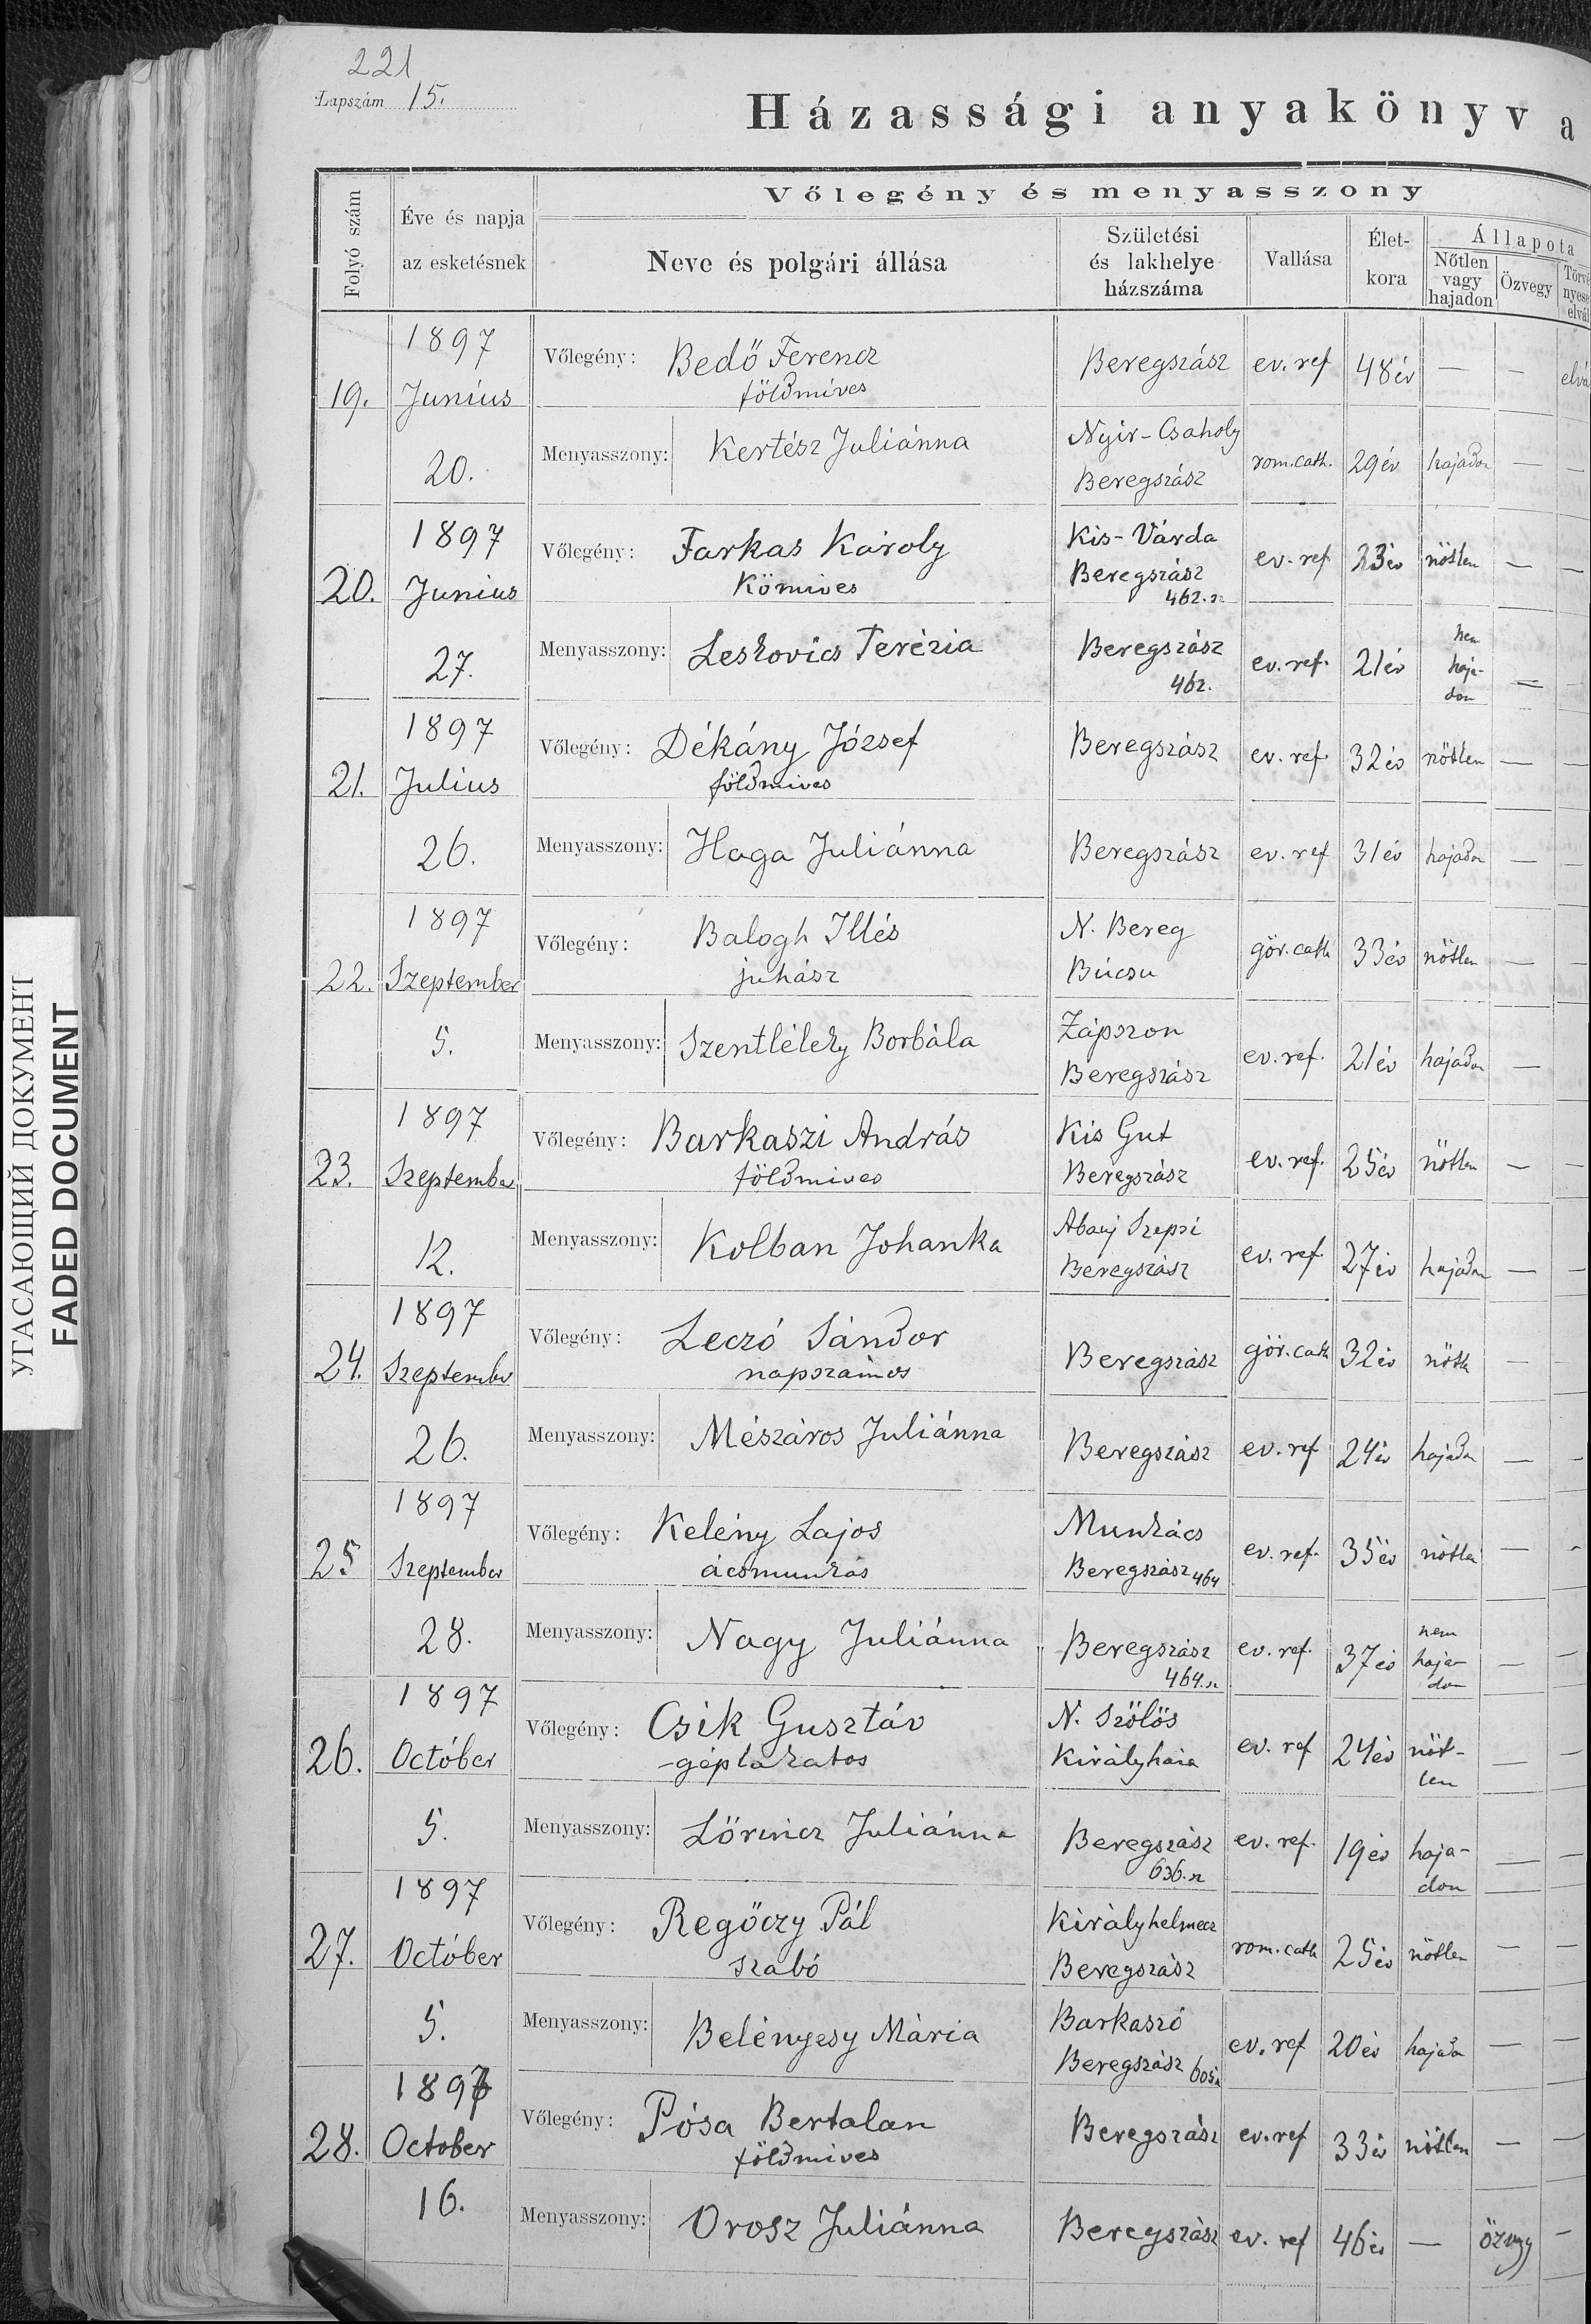 221
Lapszám 15.
Házassági anyakönyv a
Vőlegény és menyasszony
Folyó szám
Éve és napja
az esketésnek
Neve és polgári állása
Születési
és lakhelye
házszáma
Vallása
Élet-
kora
Állapota
Nőtlen
vagy
hajadon
Özvegy
Törvé
nyese
elvál
19.
1897
Junius
20.
Vőlegény: Bedő Ferencz
földmives
Beregszász ev. ref 48 év — — elvá
Menyasszony: Kertész Juliánna
Nyir-Csaholy
Beregszász
rom. cath. 29 év hajadon — —
20.
1897
Junius
27.
Vőlegény: Farkas Károly
Kömives
Kis-Várda
Beregszász
462.
ev. ref 23 év nötlen — —
Menyasszony: Leskovics Terézia
Beregszász
462.
ev. ref. 21 év
nem
haja-
don
—
21.
1897
Julius
26.
Vőlegény: Dékány József
földmives
Beregszász ev. ref. 32 év nötlen — —
Menyasszony: Haga Juliánna
Beregszász ev. ref 31 év hajadon — —
22.
1897
Szeptember
5.
Vőlegény: Balogh Illés
juhász
N. Bereg
Búcsu
gör. cath 33 év nötlen — —
Menyasszony: Szentléleky Borbála
Zápszon
Beregszász
ev. ref. 21 év hajadon —
23.
1897
Szeptember
12.
Vőlegény: Barkaszi András
földmives
Kis Gut
Beregszász
ev. ref. 25 év nötlen — —
Menyasszony: Kolban Johanka
Abauj Szepsi
Beregszász
ev. ref. 27 év hajadon — —
24.
1897
Szeptember
26.
Vőlegény: Leczó Sándor
napszámos
Beregszász gör. cath 32 év nötl — —
Menyasszony: Mészáros Juliánna
Beregszász ev. ref 24 év hajadon — —
25
1897
Szeptember
28.
Vőlegény: Kelény Lajos
ácsmunkás
Munkács
Beregszász 464
ev. ref. 35 év nötlen — —
Menyasszony: Nagy Juliánna
Beregszász
464.
ev. ref. 37 év
nem
haja-
don
— —
26.
1897
Október
5.
Vőlegény: Csik Gusztáv
géplakatos
N. Szölös
Királyháza
ev. ref 24 év nöt-
len
— —
Menyasszony: Lörincz Juliánna
Beregszász
636.
ev. ref. 19 év haja-
don
— —
27.
1897
Octóber
5.
Vőlegény: Regőczy Pál
szabó
Királyhelmecz
Beregszász
rom. cath 25 év nötlen — —
Menyasszony: Belényesy Mária
Barkaszó
Beregszász 605
ev. ref 20 év hajadon — —
28.
1897
October
16.
Vőlegény: Pósa Bertalan
földmives
Beregszász ev. ref 33 év nötlen — —
Menyasszony: Orosz Juliánna
Beregszász ev. ref 46 év — özvegy —
УГАСАЮЩИЙ ДОКУМЕНТ
FADED DOCUMENT